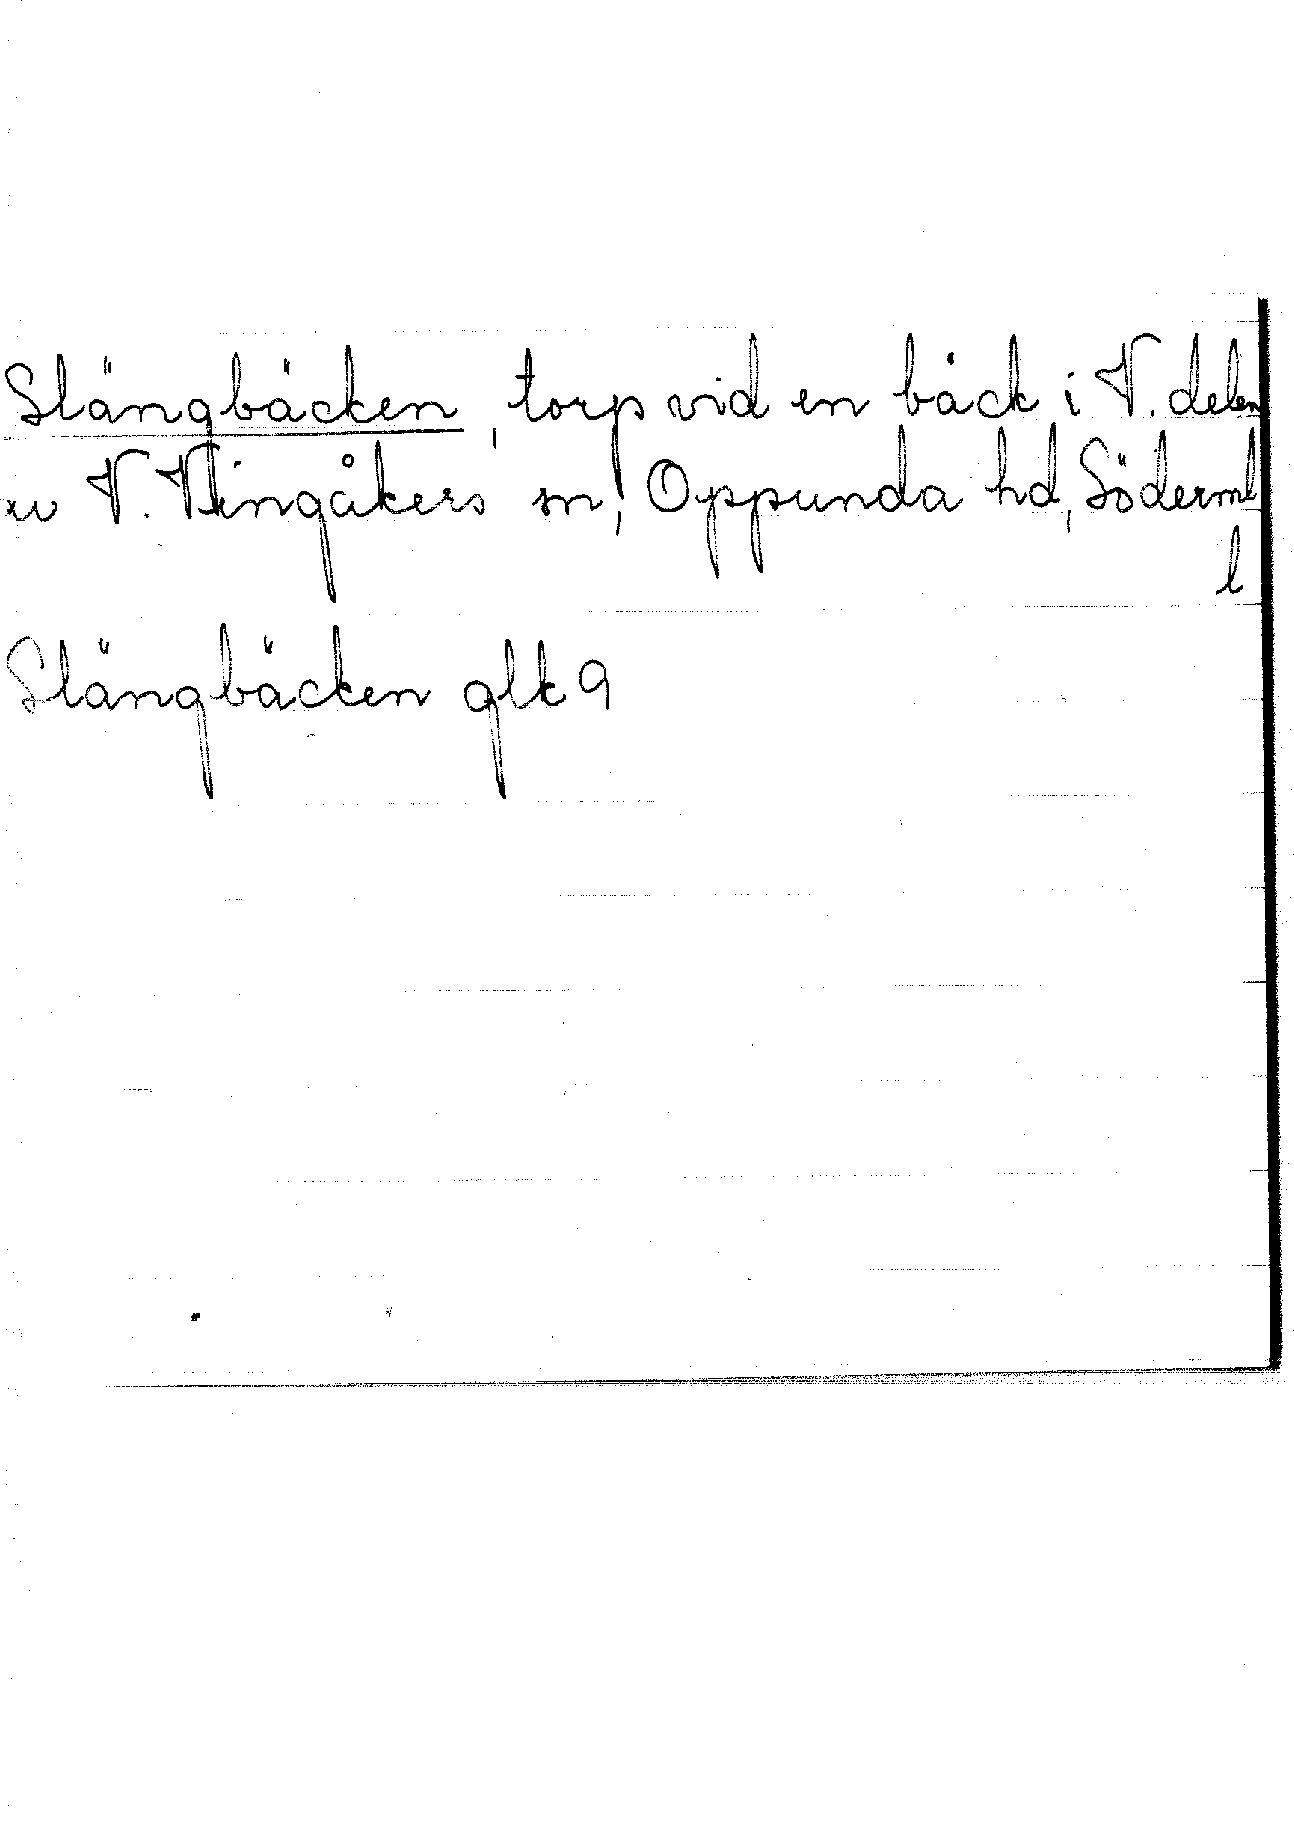 Slängbäcken, torp vid en bäck i V. delen
av V. Vingåkers sn, Oppunda hd, Söderml
l
Slängbäcken glk 9